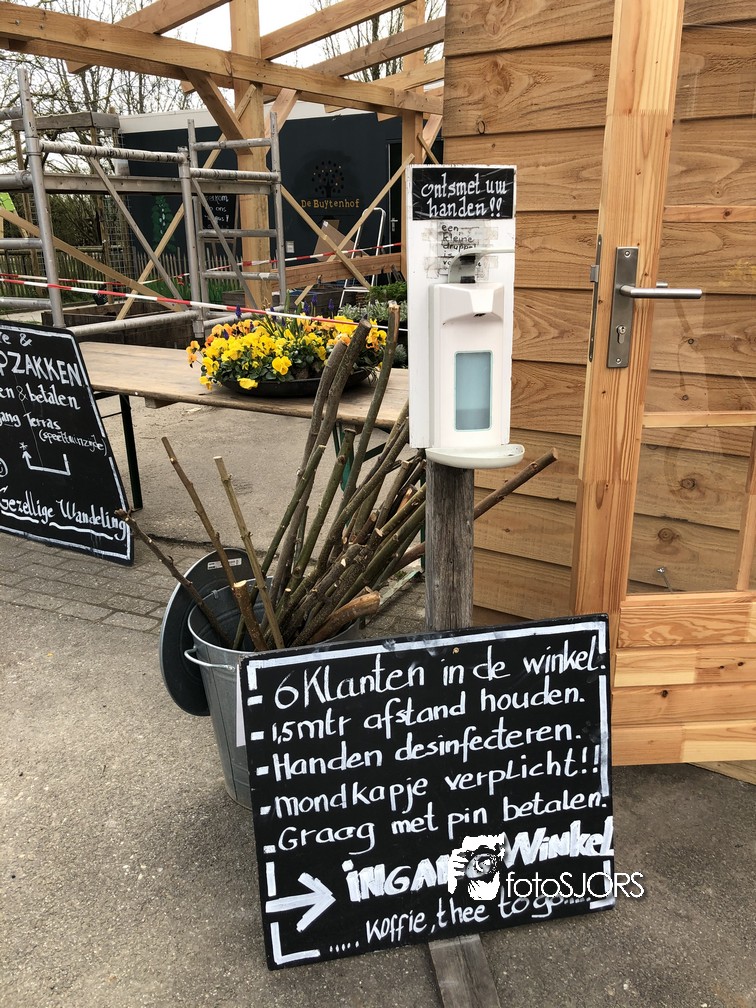 De Buytenhof
ontsmet uw
handen!!
een
kleine
druppel
is
&
PZAKKEN
en & betalen
gang Terras
(speeltuinzijde)
Gezellige Wandeling
- 6 Klanten in de winkel!
- 1,5 mtr afstand houden.
- Handen desinfecteren.
- mondkapje verplicht!!
- Graag met pin betalen.
→ INGA Winkel
..... koffie, thee to go.....
fotoSJORS